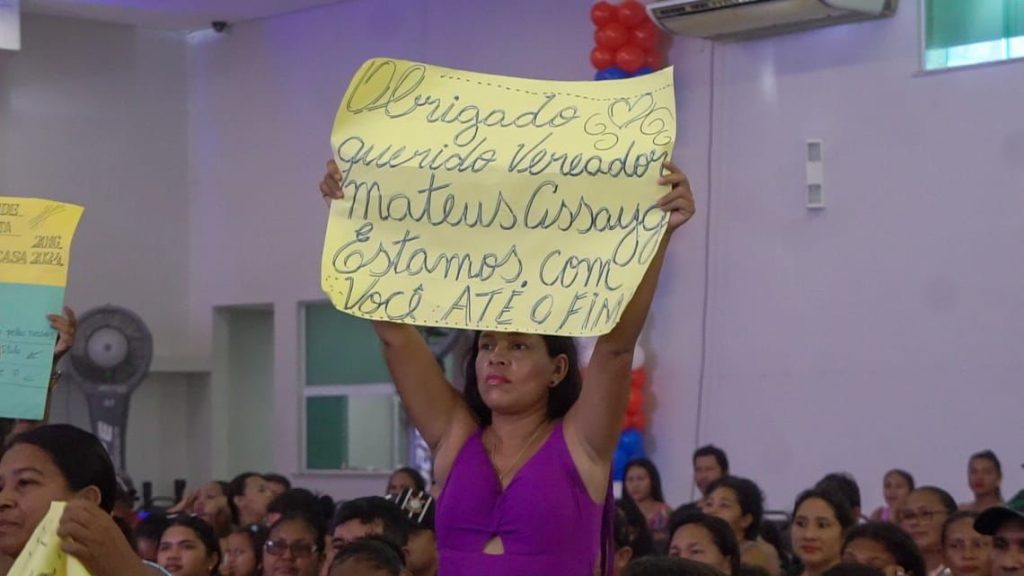 Obrigado
querido Vereador
Mateus Assayg
Estamos. com
Você ATÉ O FIM
2016
CASA 2024